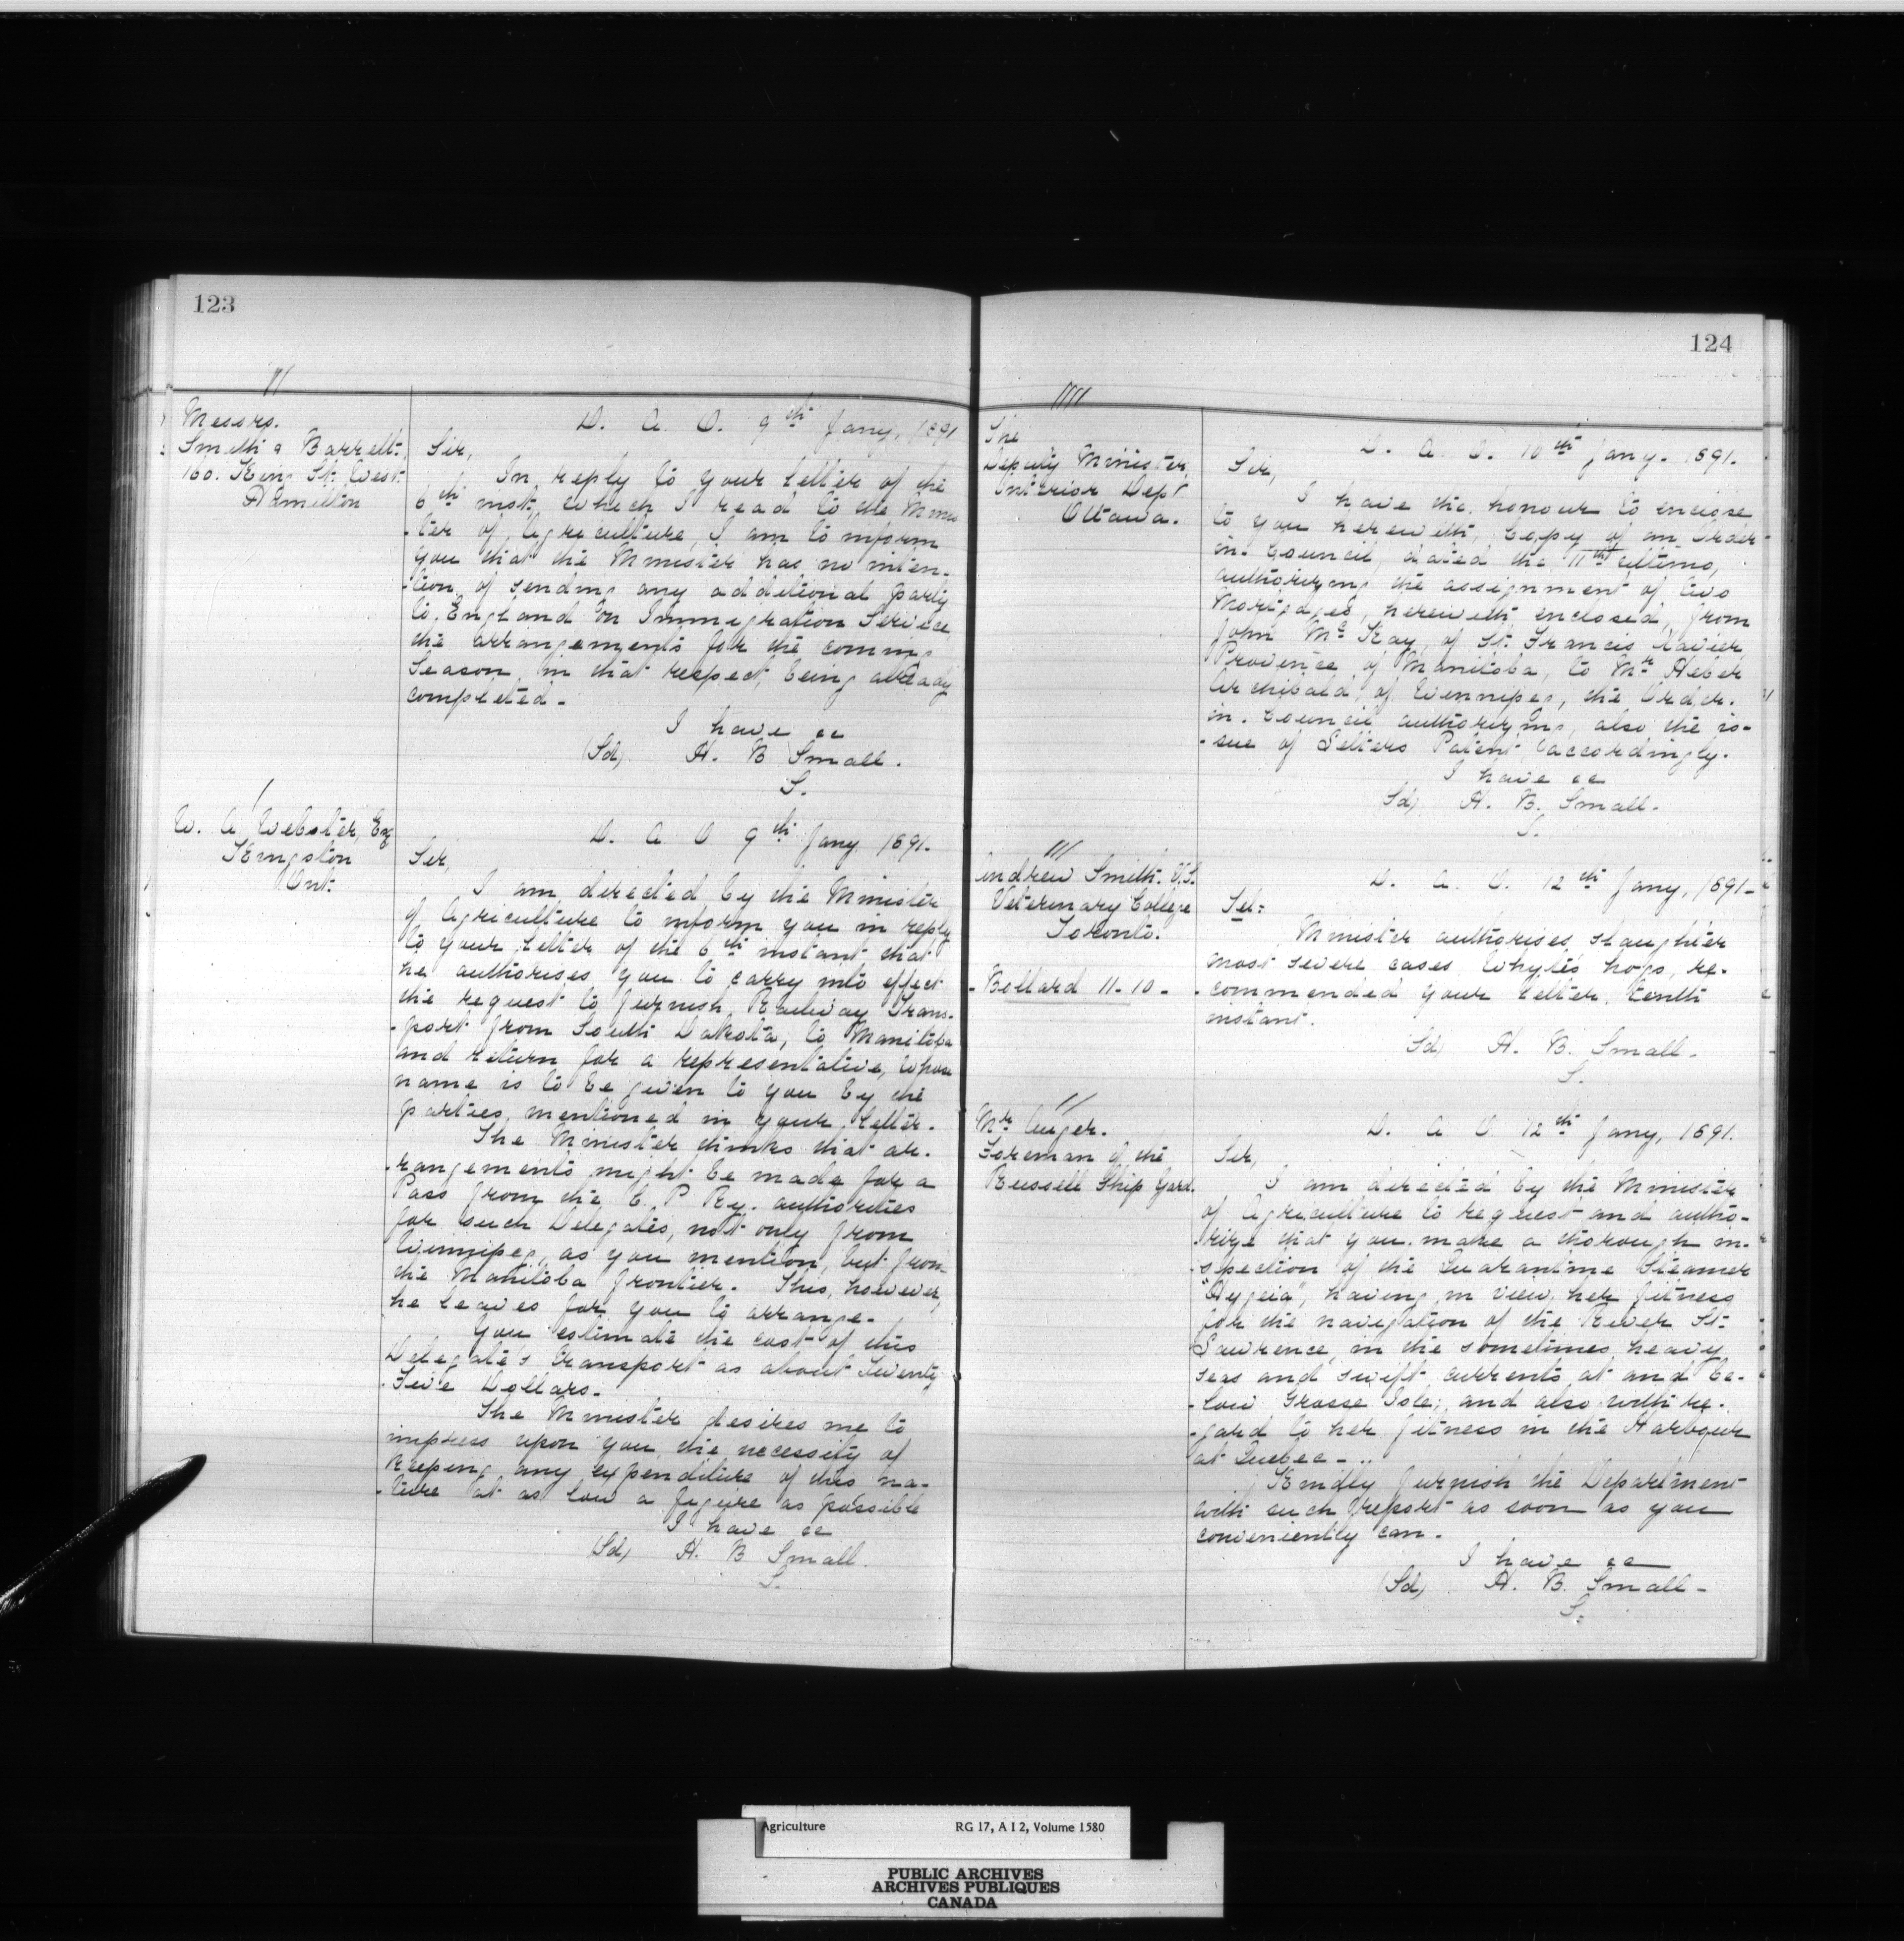 123
Messrs.
Smith & Barrett,
160. King St. West
Hamilton
D. A. O. 9th Jany, 1891
Sir,
In reply to your letter of the
6th inst, which I read to the Minis
-ter of Agriculture, I am to inform
you that the Minister has no inten-
-tion of sending any additional party
to England on Immigration Service,
the arrangements for the coming
Season, in that respect, being already
completed-
I have &c
(Sd) H. B Small.
S.
W. A. Webster, Esq
Kingston
Ont.
D. A O 9th Jany 1891.
Sir,
I am directed by the Minister
of Agriculture to inform you in reply
to your letter of the 6th instant that
he authorises you to carry into effect
the request to furnish Railway Trans-
-port from South Dakota, to Manitoba
and return for a representative, whose
name is to be given to you by the
parties mentioned in your letter.
The Minister thinks that ar-
-rangements might be made for a
Pass from the C. P Ry. authorities
for such Delegates, not only from
Winnipeg, as you mention, but from
the Manitoba frontier. This, however,
he leaves for you to arrange-
You estimate the cost of this
Delegate's transport as about Twenty
Five Dollars-
The Minister desires me to
impress upon you the necessity of
keeping any expenditure of this na-
-ture at as low a figure as possible
I have &c
(Sd) H. B Small.
S.
124
The
Deputy Minister
Interior Dept
Ottawa.
D. A. O. 10th Jany. 1891.
Sir,
I have the honour to enclose
to you herewith, Copy of an Order-
in-Council, dated the 11th ultimo,
authorizing the assignment of two
Mortgages, herewith enclosed, from
John McKay, of St. Francis Xavier,
Province of Manitoba, to Mr Heber
Archibald, of Winnipeg, the Order-
in-Council authorizing, also the is-
-sue of Letters Patent accordingly.
I have &c
Sd) H. B. Small.
S.
Andrew Smith. V.S.
Veterinary College
Toronto.
-Bollard 11-10-
D. A. O. 12th Jany, 1891-
Tel:
Minister authorises slaughter
most severe cases Whyte's hogs, re-
-commended your letter, tenth
instant.
Sd) H. B. Small-
S.
Mr Auger.
Foreman of the
Russell Ship Yard.
D. A O 12th Jany, 1891.
Sir,
I am directed by the Minister
of Agriculture to request and autho-
-rize that you make a thorough in-
-spection of the Quarantine Steamer
"Hygeia", having in view her fitness
for the navigation of the River St-
Lawrence, in the sometimes heavy
seas and swift currents at and be-
-low Grosse Isle; and also with re-
-gard to her fitness in the Harbour
at Quebec-
Kindly furnish the Department
with such report as soon as you
conveniently can.
I have &c
(Sd) H. B. Small-
S.
Agriculture RG 17, A I 2, Volume 1580
PUBLIC ARCHIVES
ARCHIVES PUBLIQUES
CANADA